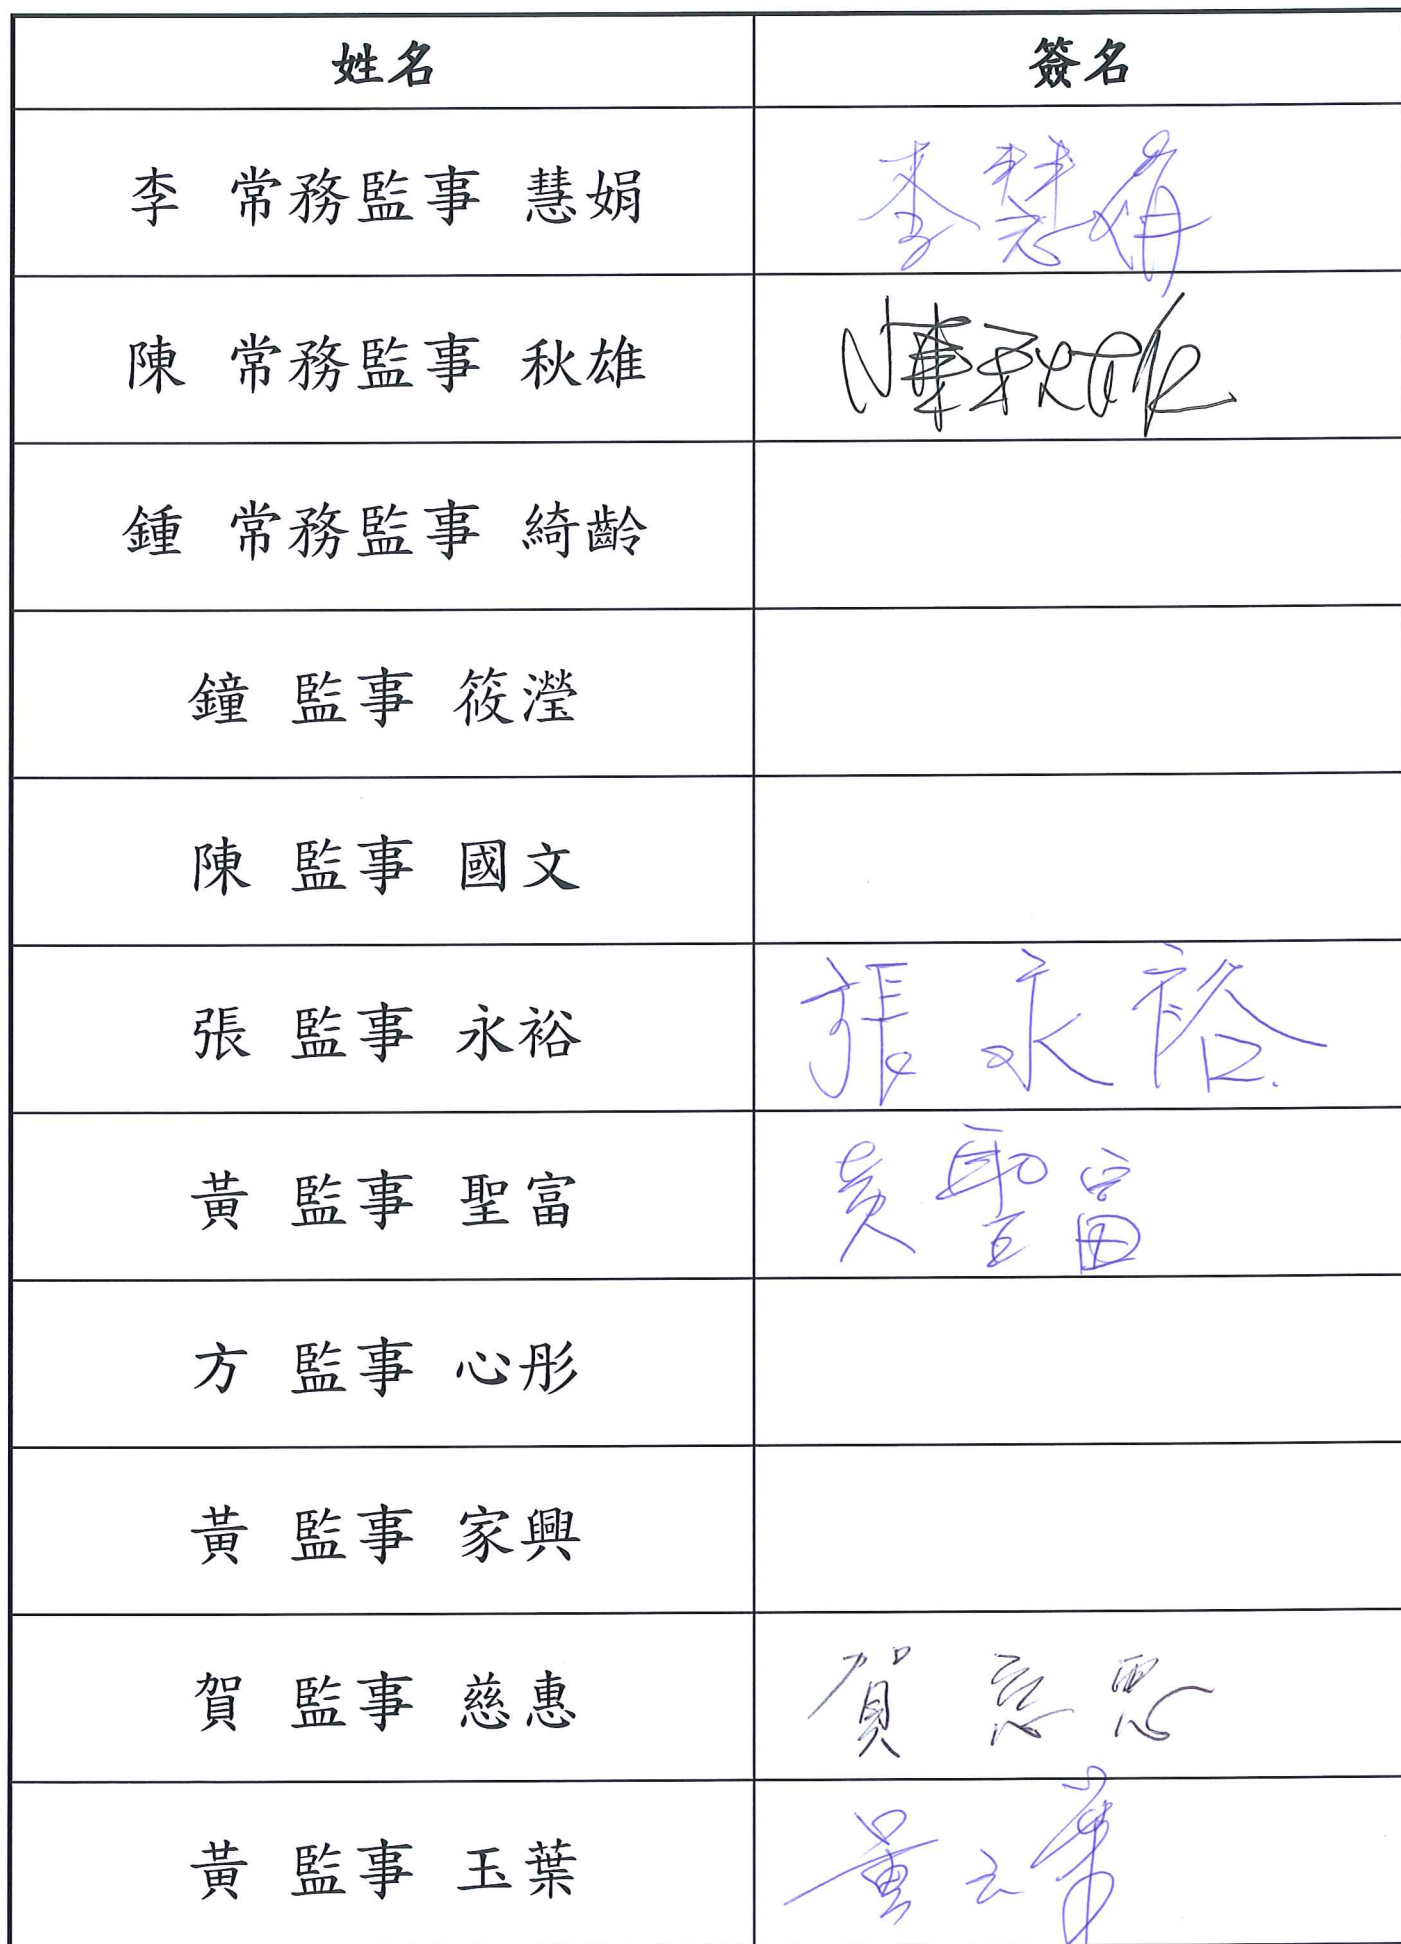 姓名 簽名
李 常務監事 慧娟 李慧娟
陳 常務監事 秋雄 陳秋雄
鍾 常務監事 綺齡
鐘 監事 筱瀅
陳 監事 國文
張 監事 永裕 張永裕
黃 監事 聖富 黃聖富
方 監事 心彤
黃 監事 家興
賀 監事 慈惠 賀慈惠
黃 監事 玉葉 黃玉葉